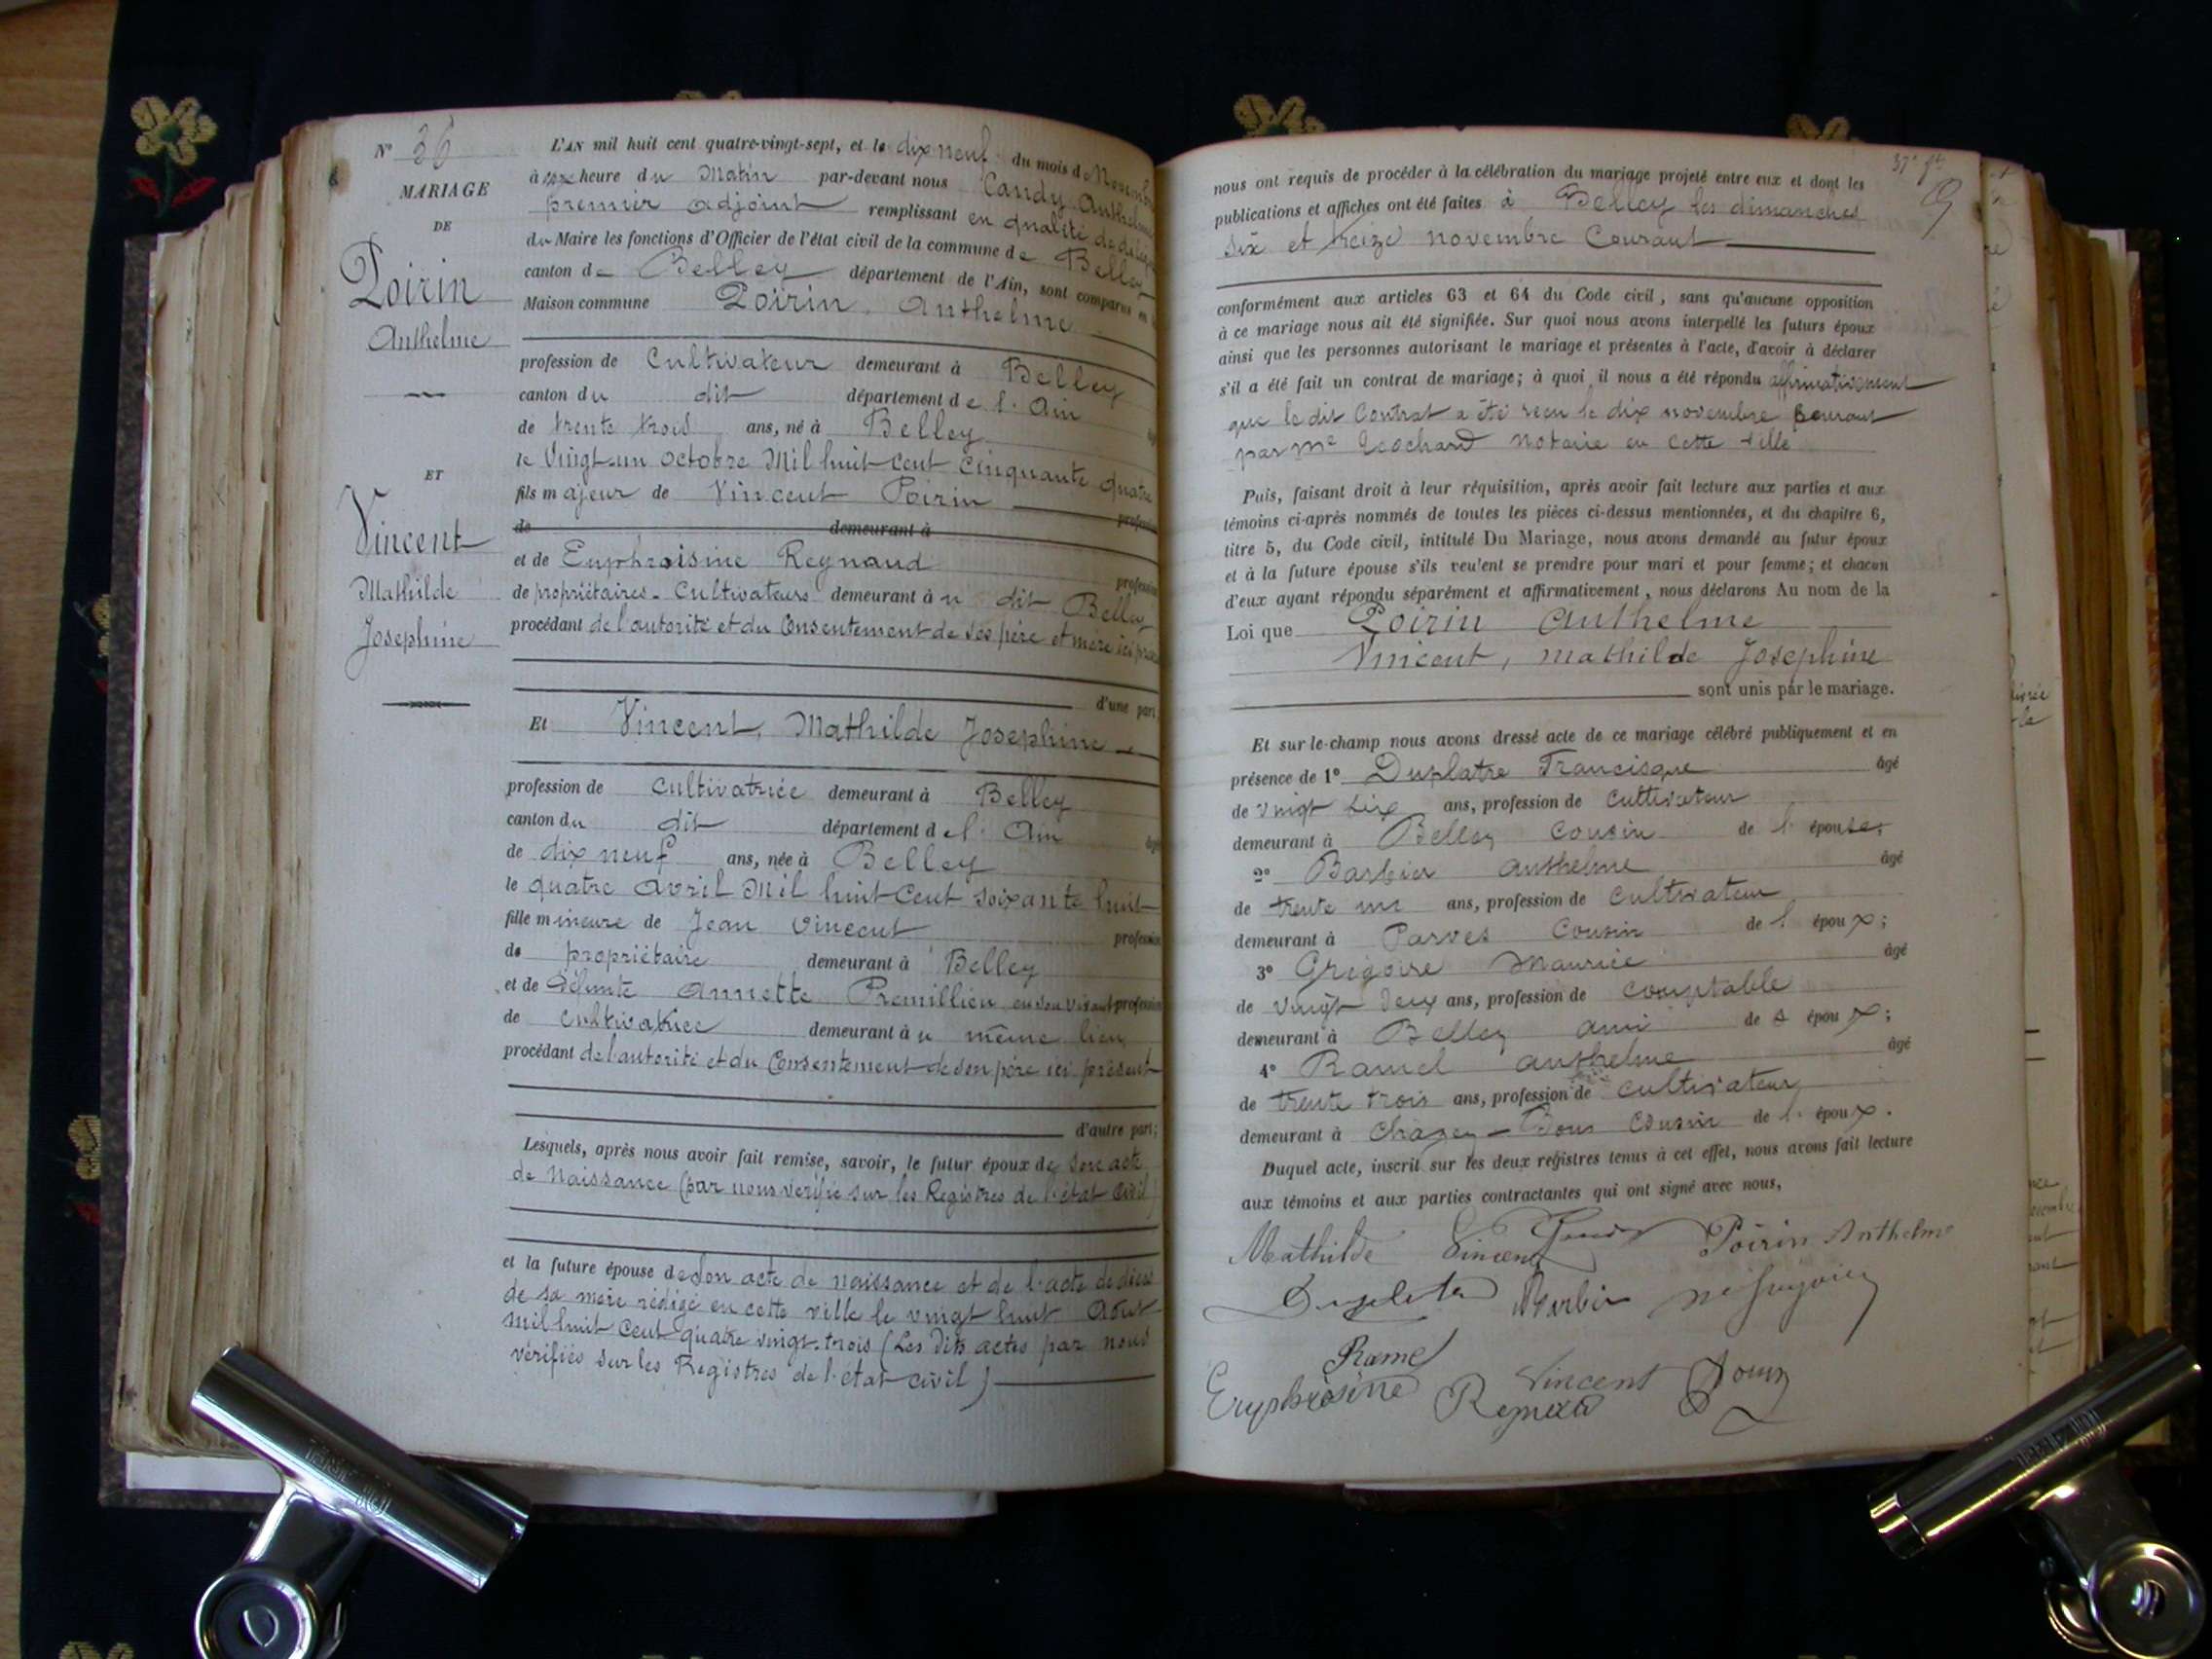 N° 36
MARIAGE
DE
Poirin
Anthelme
ET
Vincent
Mathilde
Josephine
L'AN mil huit cent quatre-vingt-sept, et le dix neuf du mois de Novembre
à heure du Matin par-devant nous Candy Anthelme
premier adjoint remplissant en qualité de délégué
du Maire les fonctions d'Officier de l'état civil de la commune de Belley
canton de Belley département de l'Ain, sont comparus en la
Maison commune Poirin, Anthelme
profession de Cultivateur demeurant à Belley
canton du dit département de l'Ain
de trente trois ans, né à Belley
le Vingt-un octobre Mil huit cent cinquante quatre
fils majeur de Vincent Poirin
de demeurant à profession
et de Euphroisine Reynaud
profession
de propriétaires-Cultivateurs demeurant à u dit Belley
procédant de l'autorité et du Consentement de ses père et mère ici présents
d'une part,
Et Vincent, Mathilde Josephine
profession de cultivatrice demeurant à Belley
canton du dit département de l'Ain
de dix neuf ans, née à Belley
le quatre avril Mil huit Cent soixante huit
fille mineure de Jean Vincent
profession
de propriétaire demeurant à Belley
et de défunte Annette Premillieu en son vivant profession
de cultivatrice demeurant à u même lieu
procédant de l'autorité et du Consentement de son père ici présent
d'autre part;
Lesquels, après nous avoir fait remise, savoir, le futur époux de son acte
de Naissance (par nous vérifié sur les Registres de l'état civil)
et la future épouse de son acte de naissance et de l'acte de décès
de sa mère rédigé en cette ville le vingt huit Août
mil huit Cent quatre vingt-trois (Les dits actes par nous
vérifiés sur les Registres de l'état civil)
37e ft
nous ont requis de procéder à la célébration du mariage projeté entre eux et dont les
publications et affiches ont été faites à Belley les dimanches
six et treize novembre Courant
conformément aux articles 63 et 64 du Code civil, sans qu'aucune opposition
à ce mariage nous ait été signifiée. Sur quoi nous avons interpellé les futurs époux
ainsi que les personnes autorisant le mariage et présentes à l'acte, d'avoir à déclarer
s'il a été fait un contrat de mariage; à quoi il nous a été répondu affirmativement
que le dit Contrat a été reçu le dix novembre courant
par Me notaire en cette ville
Puis, faisant droit à leur réquisition, après avoir fait lecture aux parties et aux
témoins ci-après nommés de toutes les pièces ci-dessus mentionnées, et du chapitre 6,
titre 5, du Code civil, intitulé Du Mariage, nous avons demandé au futur époux
et à la future épouse s'ils veulent se prendre pour mari et pour femme; et chacun
d'eux ayant répondu séparément et affirmativement, nous déclarons Au nom de la
Loi que Poirin Anthelme
Vincent, Mathilde Josephine
sont unis par le mariage.
Et sur-le-champ nous avons dressé acte de ce mariage célébré publiquement et en
présence de 1° Duplatre Francisque âgé
de vingt six ans, profession de cultivateur
demeurant à Belley cousin de l'épouse;
2° Barbier Anthelme âgé
de trente un ans, profession de cultivateur
demeurant à Parves Cousin de l'époux;
3° Grégoire Maurice âgé
de vingt deux ans, profession de comptable
demeurant à Belley ami de s époux;
4° Ramel Anthelme âgé
de trente trois ans, profession de cultivateur
demeurant à Chazey-Bons Cousin de l'époux.
Duquel acte, inscrit sur les deux registres tenus à cet effet, nous avons fait lecture
aux témoins et aux parties contractantes qui ont signé avec nous,
Mathilde Vincent Poirin Anthelme
Barbier
Ramel
Euphrosine Vincent